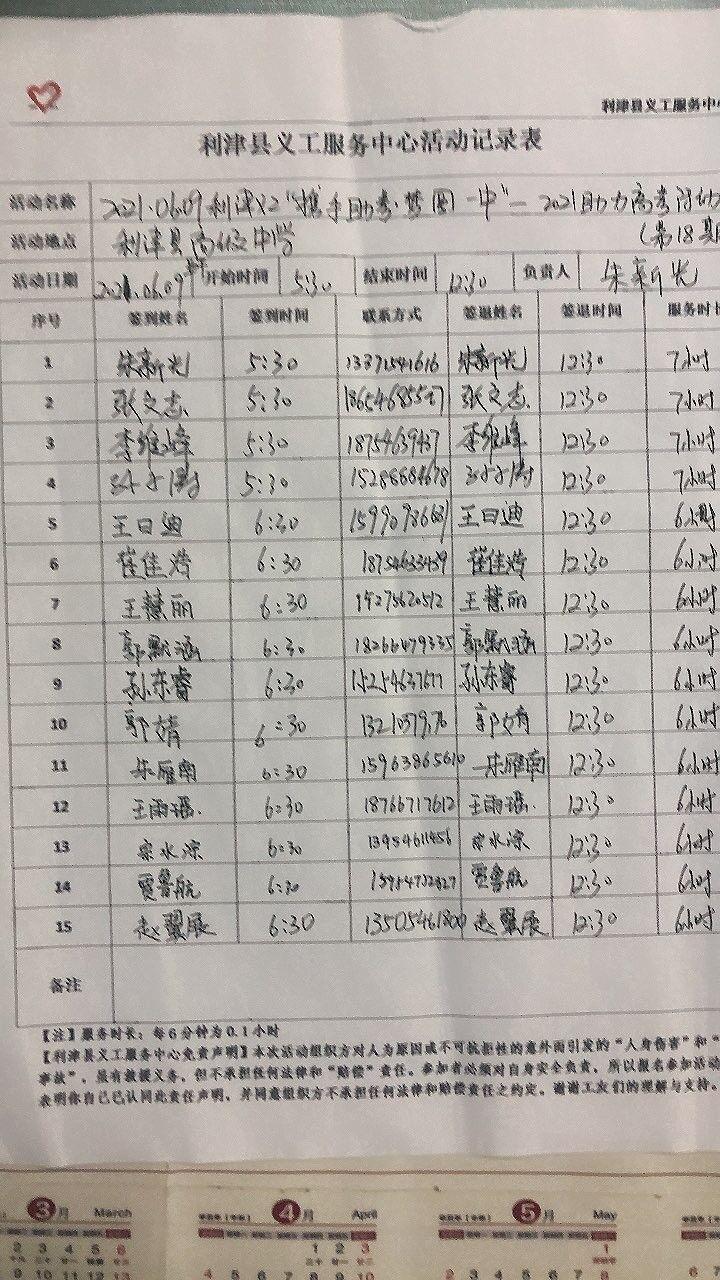 利津县义工服务中心
利津县义工服务中心活动记录表
活动名称 2021.06.09利津义工"携手助考·梦圆一中"—2021助力高考活动
活动地点 利津县高级中学 (第18期
活动日期 2021.06.09 开始时间 5:30 结束时间 12:30 负责人 朱新光
序号 签到姓名 签到时间 联系方式 签退姓名 签退时间 服务时长
1 朱新光 5:30 朱新光 12:30 7小时
2 张文志 5:30 张文志 12:30 7小时
3 李维峰 5:30 18754639437 李维峰 12:30 7小时
4 5:30 15288684678 12:30 7小时
5 王日迪 6:30 王日迪 12:30 6小时
6 崔佳浩 6:30 18754633439 崔佳浩 12:30 6小时
7 王慧丽 6:30 王慧丽 12:30 6小时
8 郭默涵 6:30 18266479335 郭默涵 12:30 6小时
9 孙东睿 6:30 15254637677 孙东睿 12:30 6小时
10 郭婧 6:30 郭婧 12:30 6小时
11 朱雁南 6:30 15963865610 朱雁南 12:30 6小时
12 王雨瑶. 6:30 18766717612 王雨瑶. 12:30 6小时
13 6:30 13954611456 12:30 6小时
14 贾鲁航 6:30 贾鲁航 12:30 6小时
15 赵翼展 6:30 13505461800 赵翼展 12:30 6小时
备注
【注】服务时长：每6分钟为0.1小时
【利津县义工服务中心免责声明】本次活动组织方对人为原因或不可抗拒性的意外而引发的"人身伤害"和"
事故"，虽有救援义务，但不承担任何法律和"赔偿"责任。参加者必须对自身安全负责，所以报名参加活动
表明你自己已认同此责任声明，并同意组织方不承担任何法律和赔偿责任之约定。谢谢工友们的理解与支持。
3月 March 4月 April 5月 May
2 3 4 5 6 1 2 3 1
9 10 11 12 13 4 5 6 7 8 9 10 2 3 4 5 6 7 8 6 7